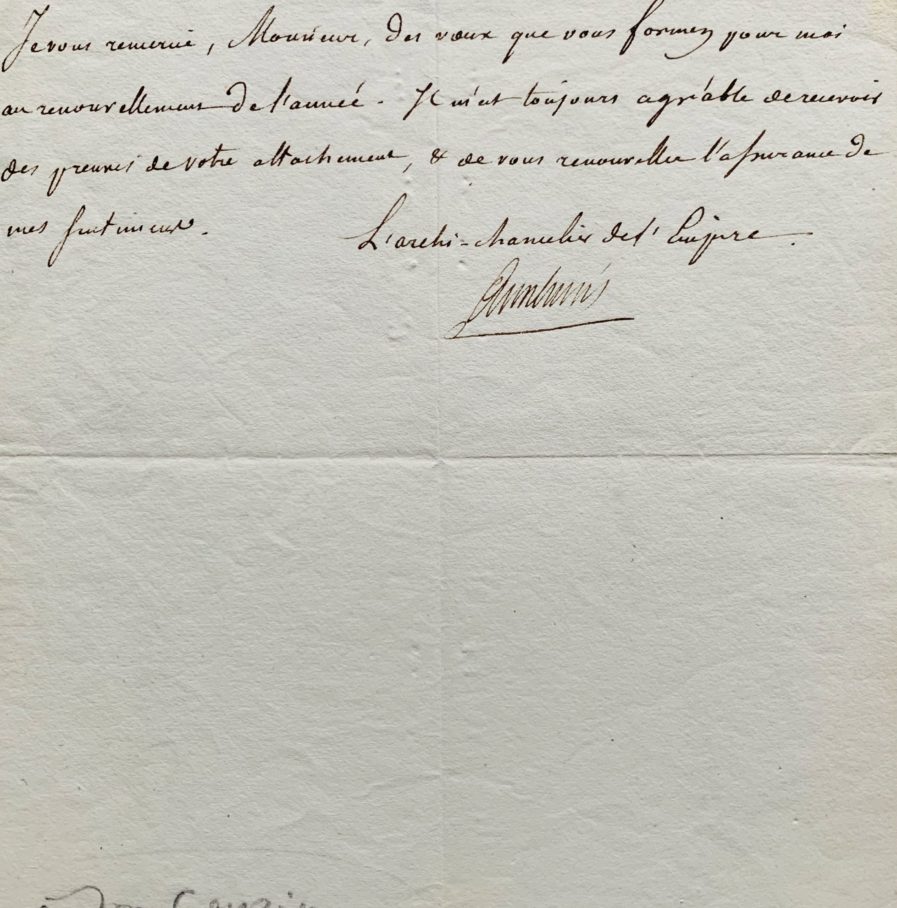 Je vous remercie, Monsieur, des vœux que vous formez pour moi
au renouvellement de l'année. Il m'est toujours agréable de recevoir
des preuves de votre attachement, & de vous renouveller l'assurance de
mes sentimens.
L'archi-chancelier de l'Empire.
Cambacérès